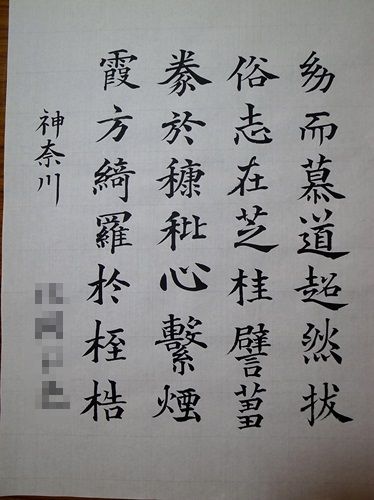 幼而慕道超然拔
俗志在芝桂譬芻
豢於穅秕心繫煙
霞方綺羅於桎梏
神奈川